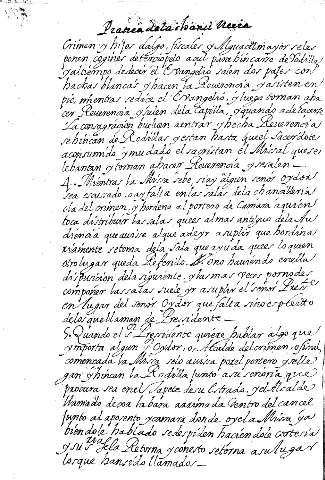 Practica de la chancil.ª Nueva
Crimen y hijos dalgo, fiscales y Alguacil mayor se les
ponen coxines de terciopelo aqui para hincarse de Rodillas
y al tiempo de decir el Evangelio salen dos pajes con
hachas blancas y hacen la Reverencia, y asisten en
pie, mientras se dice el Evangelio, y luego tornan a ha
cer Reverencia y salen de la Capilla, y quando adelante
La consagracion buelven a entrar y hecha Reverencia
se hincan de Rodillas y estan hasta que el Sacerdote
a consumido y mudado el sacristan el Missal que se
lebantan y tornan a hacer Reverencia y se salen
4. Mientras la Missa sebe si ay algun señor oydor
sea escusado, o ay falta en las salas de la chancilleria
o la del crimen, y hordena al portero de Camara a quien
toca distribuir las salas que es al mas antiguo de la Au
diencia que avise al que a de yr a suplir que hordina
riamente se toma de la sala que ayuda que es lo quien
otro lugar queda Referido. Y no haviendo
disposicion de la siguiente, y las mas veces por no des
componer las salas suele yr a suplir el señor Press.te
en lugar del señor Oydor que falta sino es pleito
de los que llaman de Pressidente
5. Quando el S.r Pressidente quiere hablar algo que
ymporta algun S.r Oydor, o Alcalde del crimen,
comenzada la Missa selo avissa por el portero y alle
gan y hincan la Rodilla junto a su señoria que
procura sea en el tapete de su Estrado, y el Alcalde
llamado dexa la bara arrimada dentro del cancel
junto al aposento, y camara donde oye la Missa, y a
biendole hablado se despiden haciendole cortesia
y su s.ria se la Retorna, y con esto se torna a su lugar
los que han sido llamados